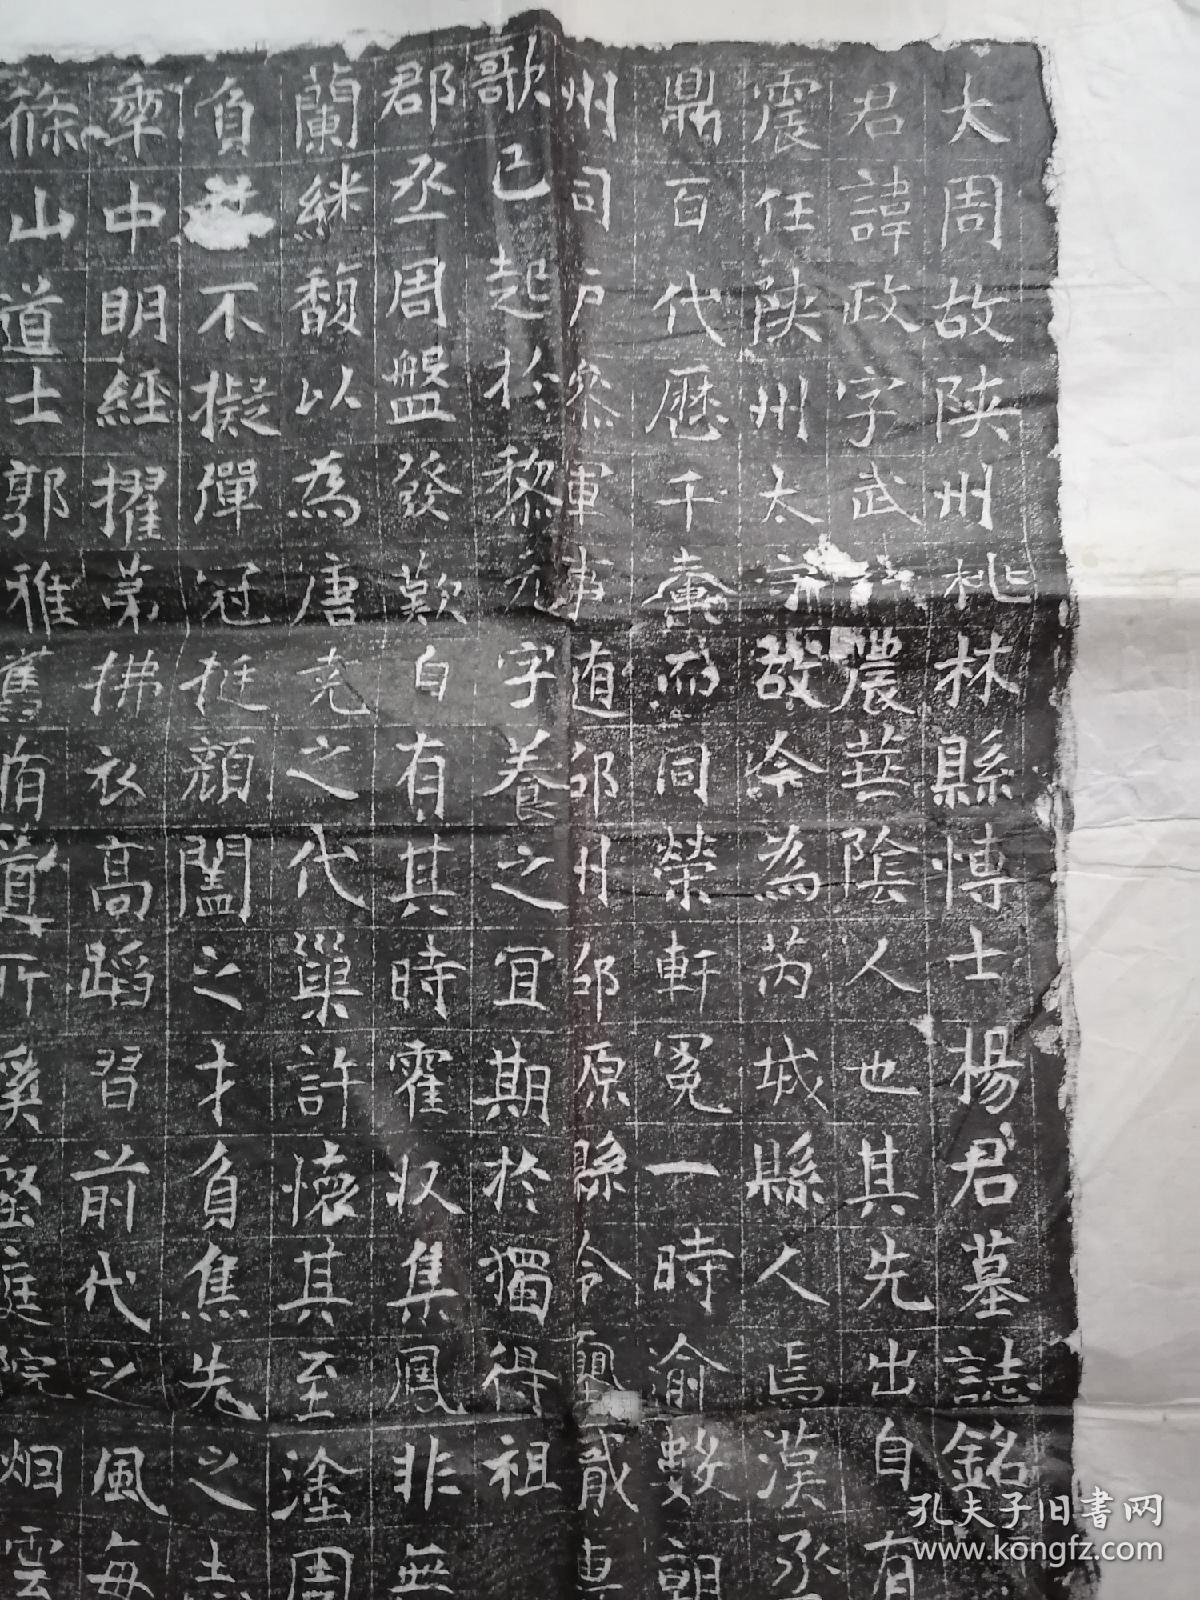 大周故陝州桃林縣博士楊君墓誌銘
君諱政字武農華陰人也其先出自有
震任陝州太守故今為芮城縣人焉漢丞
鼎百代曆千齡而同榮軒冕一時渝數朝
州司戶參軍事道邠州邠原縣令璽貳
歌已起於黎元字養之宜期於獨得祖
郡丞周盤發歎自有其時霍收集鳳非無
蘭継馥以為唐堯之代巢許懷其至塗周
負其不擬彈冠挺顏闔之才負焦先之
率中明經擢第拂衣高蹈習前代之風每
篠山道士郭雅舊脩道所奚壑庭院烟雲
孔夫子旧书网
www.kongfz.com